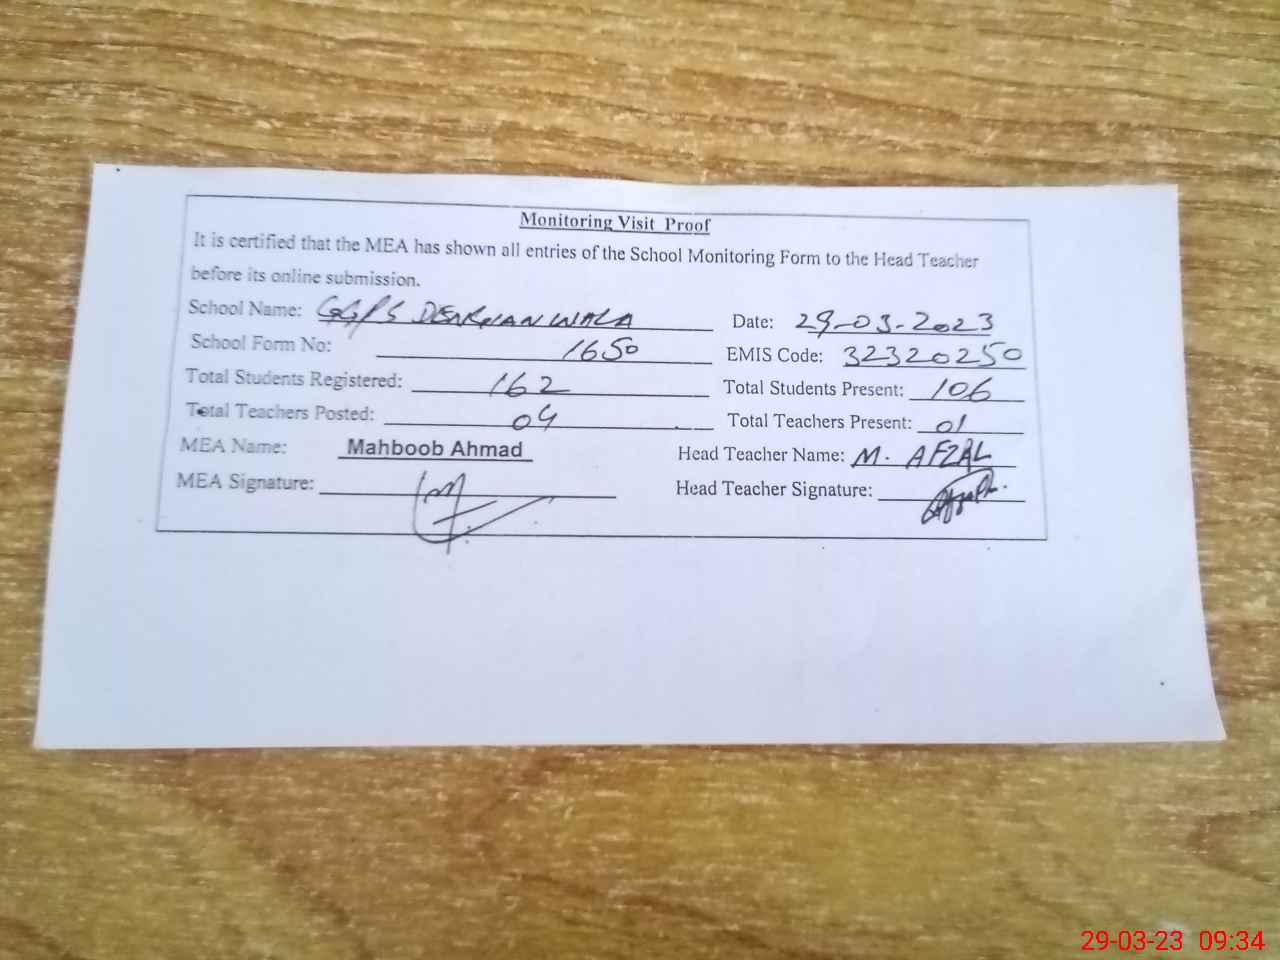 Monitoring Visit Proof
It is certified that the MEA has shown all entries of the School Monitoring Form to the Head Teacher
before its online submission.
School Name: GGPS Date: 29-03-2023
School Form No: 1650 EMIS Code: 32320250
Total Students Registered: 162 Total Students Present: 106
Total Teachers Posted: 04 Total Teachers Present: 01
MEA Name: Mahboob Ahmad Head Teacher Name: M. AFZAL
MEA Signature: Head Teacher Signature:
29-03-23 09:34